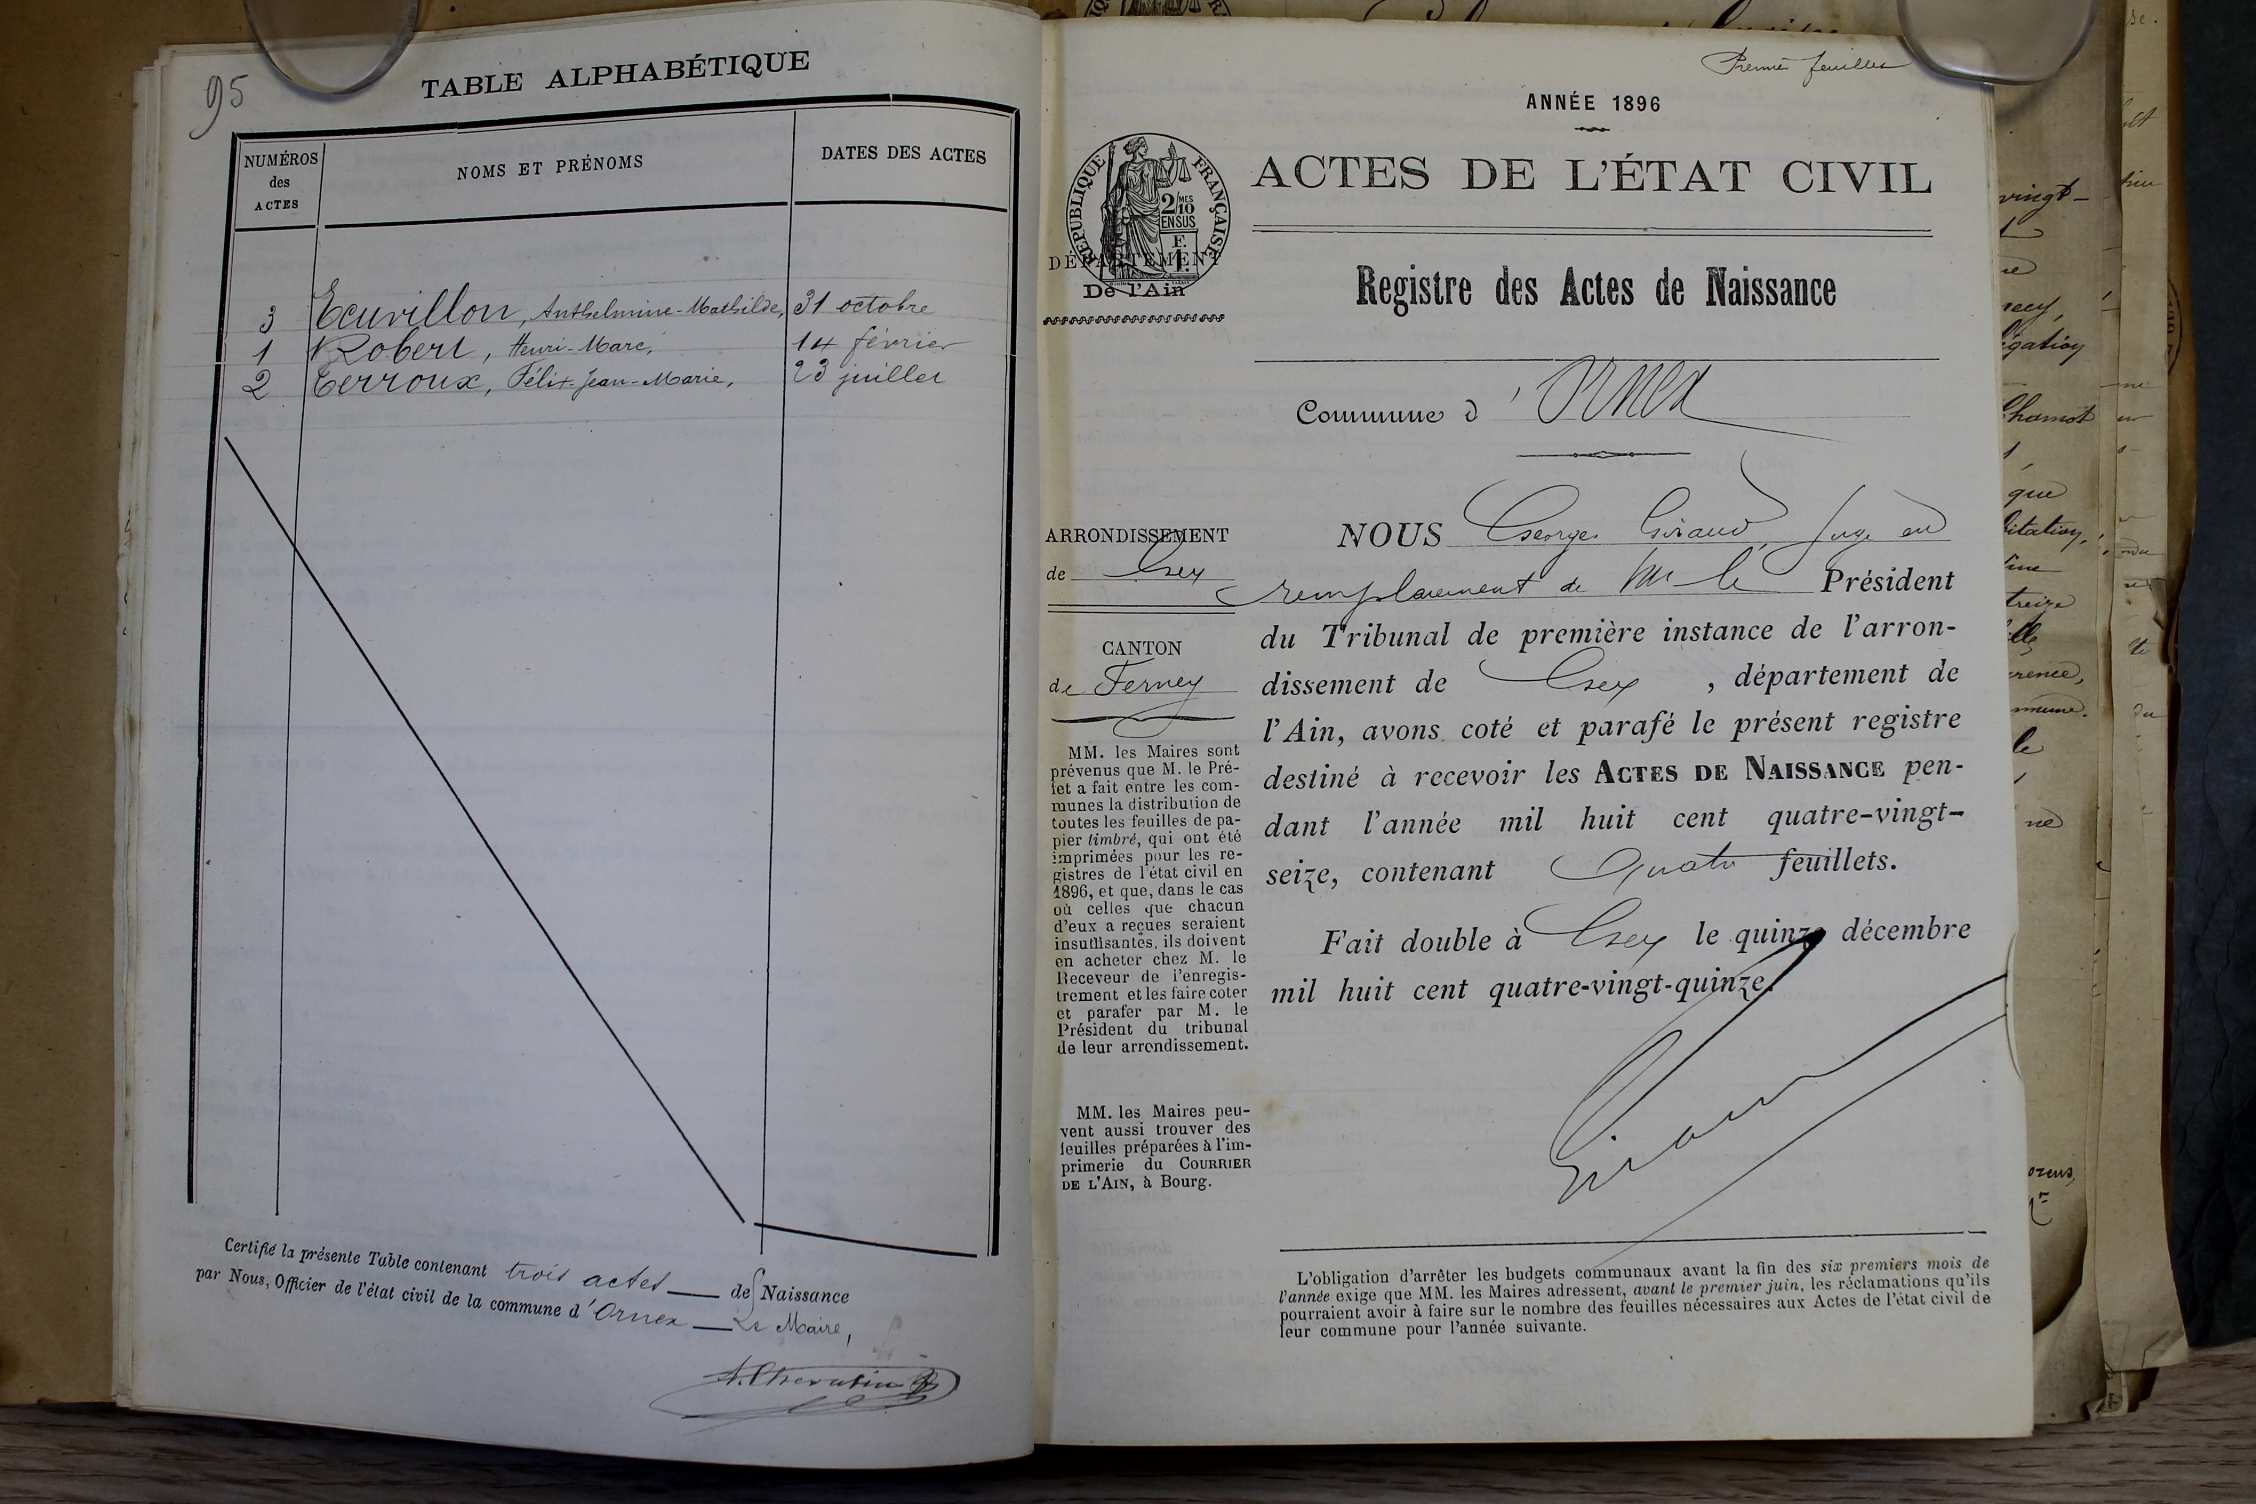 95
TABLE ALPHABÉTIQUE
NUMÉROS
des
ACTES
NOMS ET PRÉNOMS
DATES DES ACTES
3 Ecuvillon, Anthelmine-Mathilde, 31 octobre
1 Robert, Henri-Marc, 14 février
2 Terroux, Félix-Jean-Marie, 23 juillet
Certifié la présente Table contenant trois actes de Naissance
par Nous, Officier de l'état civil de la commune d'Ornex Le Maire,
Premier feuillet
ANNÉE 1896
ACTES DE L'ÉTAT CIVIL
RÉPUBLIQUE FRANÇAISE
2/10 MES
EN SUS
F.
1.
DÉPARTEMENT
De l'Ain
Registre des Actes de Naissance
Commune d'Ornex
ARRONDISSEMENT
de Gex
CANTON
de Ferney
MM. les Maires sont
prévenus que M. le Pré-
fet a fait entre les com-
munes la distribution de
toutes les feuilles de pa-
pier timbré, qui ont été
imprimées pour les re-
gistres de l'état civil en
1896, et que, dans le cas
où celles que chacun
d'eux a reçues seraient
insuffisantes, ils doivent
en acheter chez M. le
Receveur de l'enregis-
trement et les faire coter
et parafer par M. le
Président du tribunal
de leur arrondissement.
MM. les Maires peu-
vent aussi trouver des
feuilles préparées à l'im-
primerie du COURRIER
DE L'AIN, à Bourg.
NOUS Georges Giraud, Juge en
remplacement de Mr le Président
du Tribunal de première instance de l'arron-
dissement de Gex, département de
l'Ain, avons coté et parafé le présent registre
destiné à recevoir les ACTES DE NAISSANCE pen-
dant l'année mil huit cent quatre-vingt-
seize, contenant Quatre feuillets.
Fait double à Gex le quinze décembre
mil huit cent quatre-vingt-quinze.
Giraud
L'obligation d'arrêter les budgets communaux avant la fin des six premiers mois de
l'année exige que MM. les Maires adressent, avant le premier juin, les réclamations qu'ils
pourraient avoir à faire sur le nombre des feuilles nécessaires aux Actes de l'état civil de
leur commune pour l'année suivante.
vingt-
que
treize